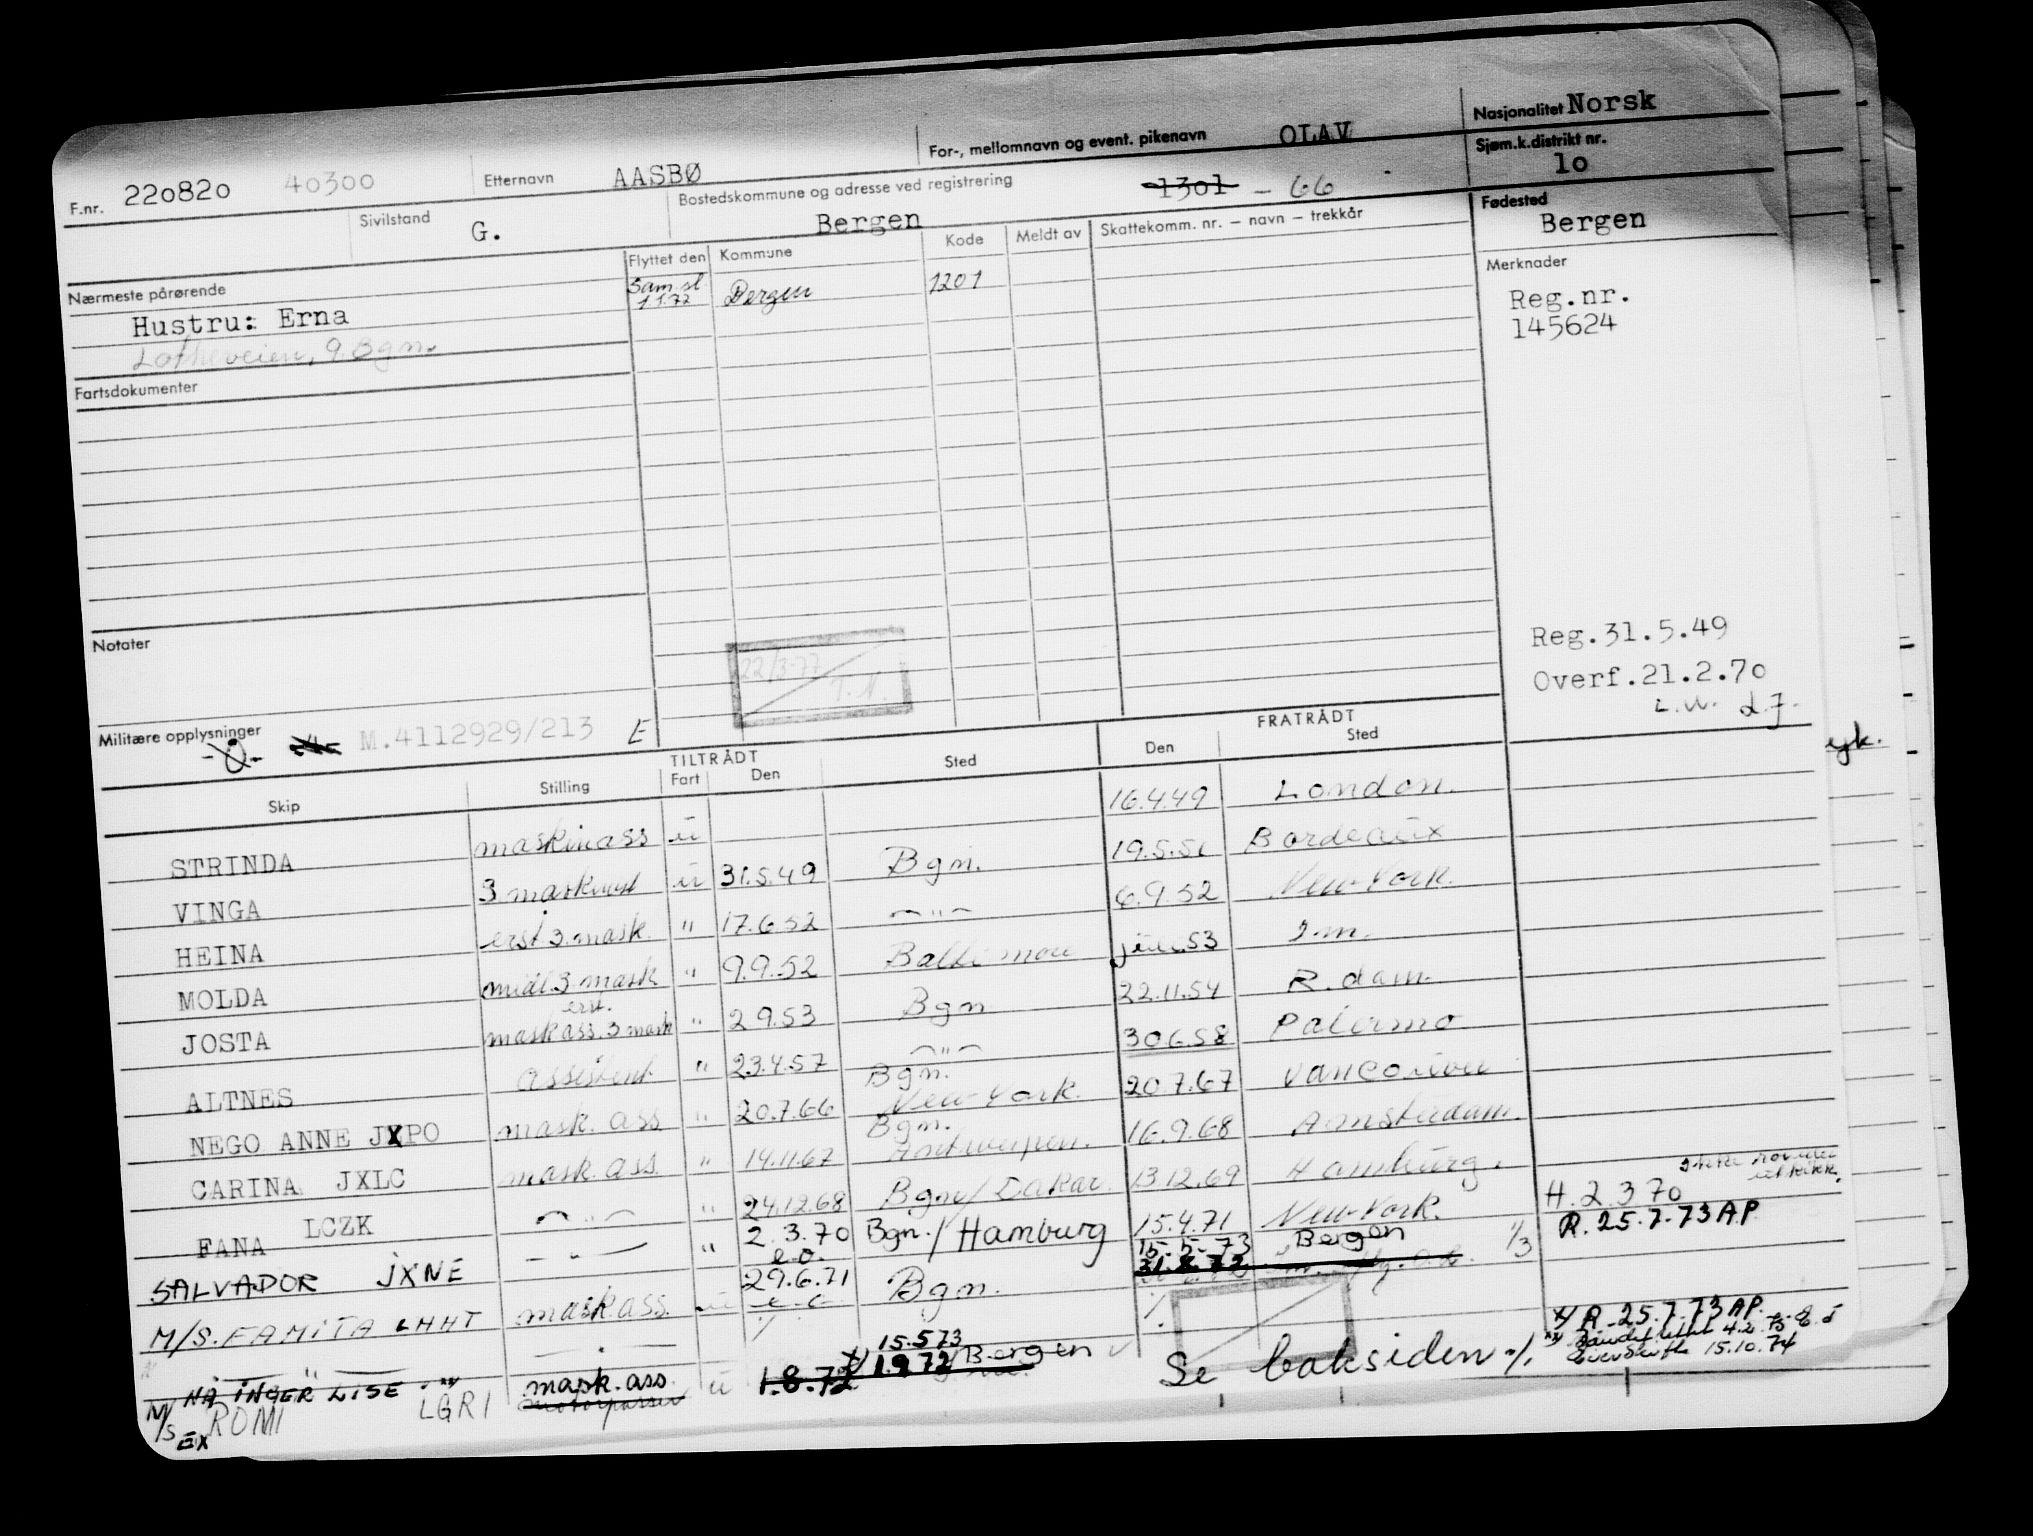 F.nr. 220820 40300 Etternavn AASBØ For-, mellomnavn og event. pikenavn OLAV Nasjonalitet Norsk
Sivilstand G. Bostedskommune og adresse ved registrering Bergen 1301 - 66 Sjøm.k.distrikt nr. 10
Fødested Bergen
Nærmeste pårørende Flyttet den Kommune Kode Meldt av Skattekomm. nr. - navn - trekkår
Hustru: Erna Sam.sl. 1.1.72 Bergen 1201
Merknader
Reg.nr.
145624
9 Bgn.
Fartsdokumenter
Notater
22/3-77
Reg.31.5.49
Overf.21.2.70
Militære opplysninger M.4112929/213 E
TILTRÅDT FRATRÅDT
Skip Stilling Fart Den Sted Den Sted
STRINDA maskinass u 16.4.49 London.
VINGA u 31.5.49 Bgn. 19.5.51 Bordeaux
HEINA erst 3. mask. " 17.6.52 — " — 6.9.52 New-York.
MOLDA midl. 3 mask " 9.9.52 Baltimore 53
JOSTA maskass. erst. 3 mask " 2.9.53 Bgn 22.11.54 R.dam.
ALTNES assistent " 23.4.57 — " — 30.6.58 Palermo
NEGO ANNE JXPO mask. ass " 20.7.66 Bgn. New-York. 20.7.67 Vancouver
CARINA JXLC mask. ass. " 14.11.67 Bgn. Antwerpen. 16.9.68 Amsterdam.
FANA LCZK — " — " 24.12.68 Bgn/Dakar. 13.12.69 Hamburg.
SALVADOR JXNE — " — " 2.3.70 e.o. Bgn./Hamburg 15.4.71 New-York. H.2.3 70
M/S. FAMITA LHHT mask ass. u 29.6.71 Bgn. 15-5-73 Bergen 1/3 R.25.7.73 A.P
31.8.72
x/ R-25.7.73 A.P.
4.2.75
15.10.74
M/S NÅ INGER LISE LGRI mask.ass. u 1.8.72 x/ 1.9.72 15.5.73 Bergen
EX ROMI
Se baksiden ./.